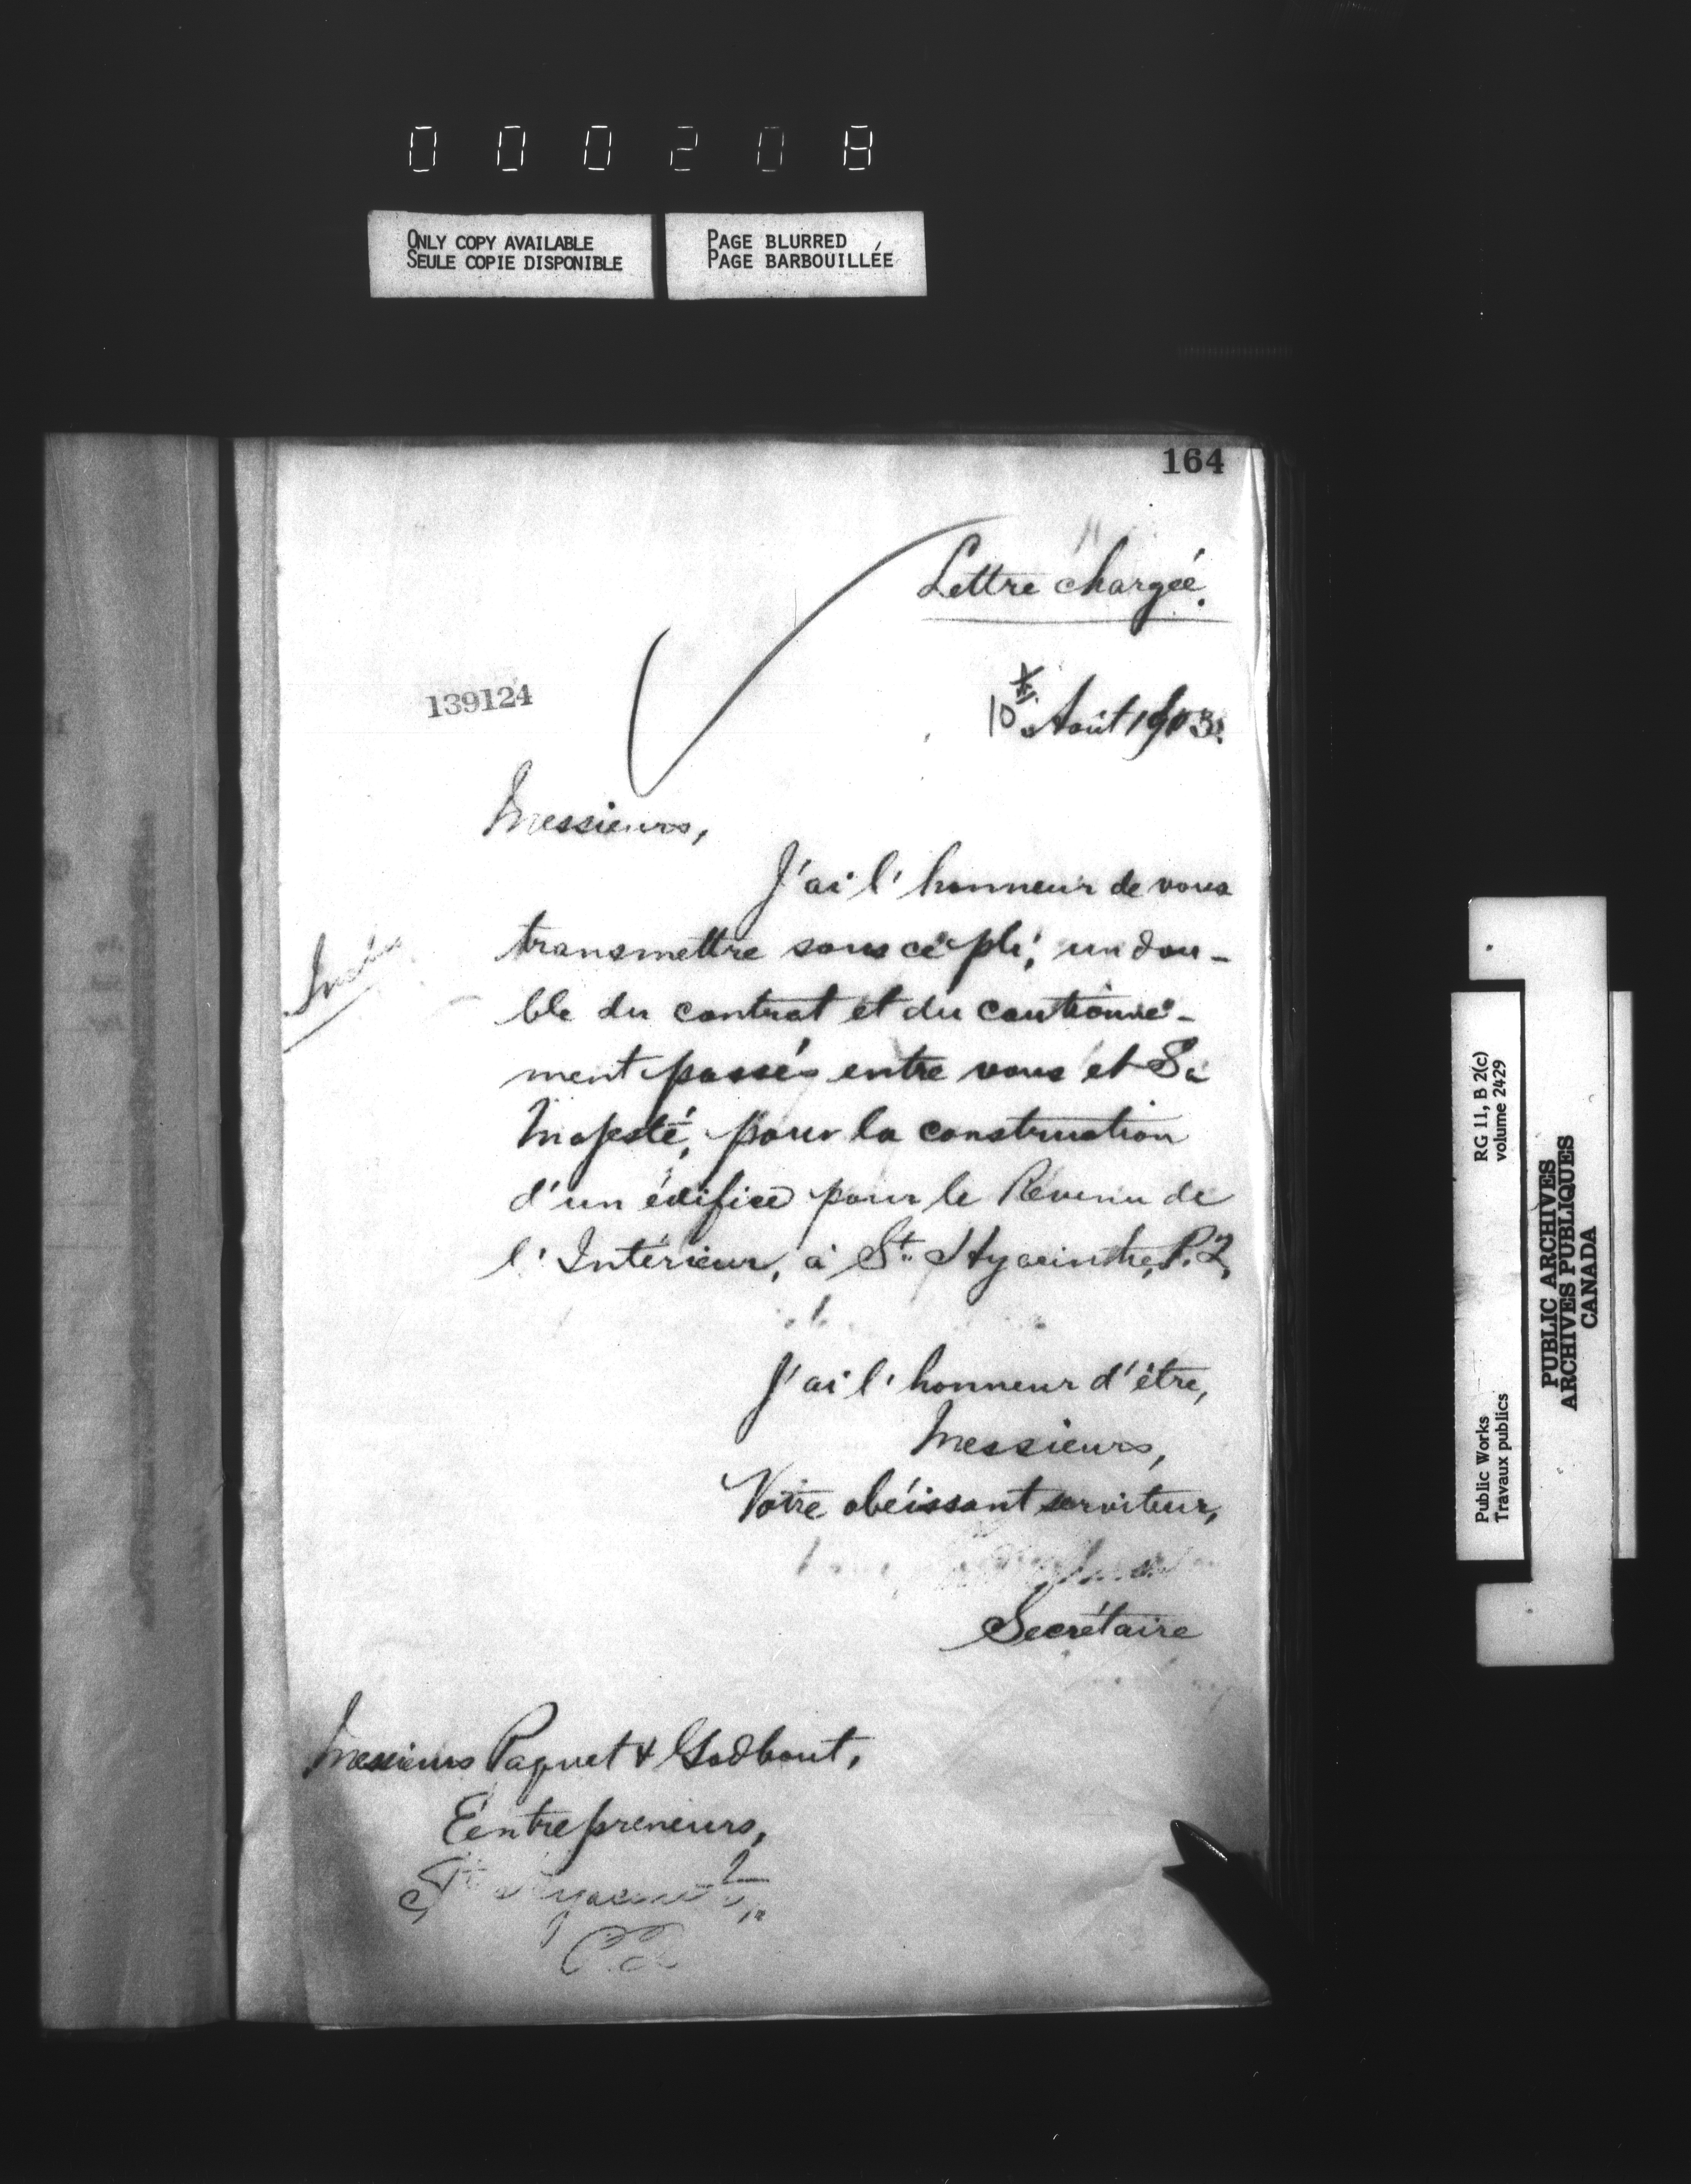 000208
ONLY COPY AVAILABLE
SEULE COPIE DISPONIBLE
PAGE BLURRED
PAGE BARBOUILLÉE
164
Lettre chargée.
139124
10 Août 1903.
Messieurs,
J'ai l'honneur de vous
transmettre sous ce pli, un dou-
ble du contrat et du cautionne-
ment passés entre vous et Sa
Majesté, pour la construction
d'un édifice pour le Revenu de
l'Intérieur, à St. Hyacinthe, P.Q.
J'ai l'honneur d'être,
Messieurs,
Votre obéissant serviteur,
Secrétaire
Messieurs Paquet & Godbout,
Eentrepreneurs,
St Hyacinthe,
P.Q.
RG 11, B 2(c)
volume 2429
Public Works
Travaux publics
PUBLIC ARCHIVES
ARCHIVES PUBLIQUES
CANADA